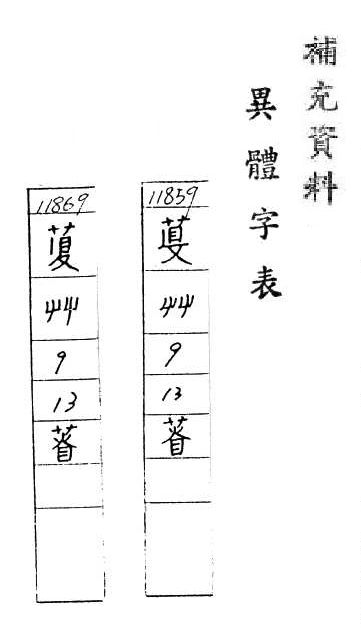 補充資料
異體字表
11859
艸
9
13
11869
艸
9
13